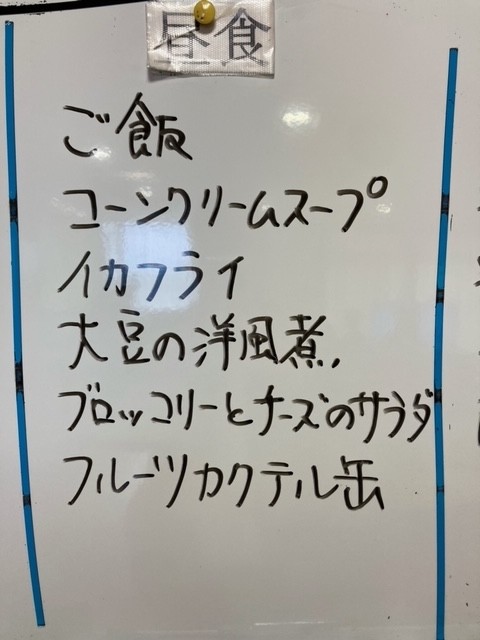 昼食
ご飯
コーンクリームスープ
イカフライ
大豆の洋風煮
ブロッコリーとチーズのサラダ
フルーツカクテル缶